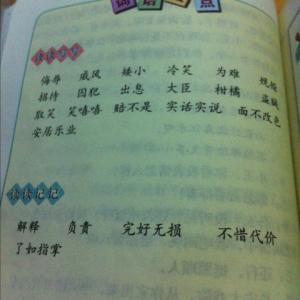 词语 点
读读写写
侮辱 威风 矮小 冷笑 为难 规矩
招待 囚犯 出息 大臣 柑橘 盗贼
取笑 笑嘻嘻 赔不是 实话实说 面不改色
安居乐业
读读记记
解释 负责 完好无损 不惜代价
了如指掌